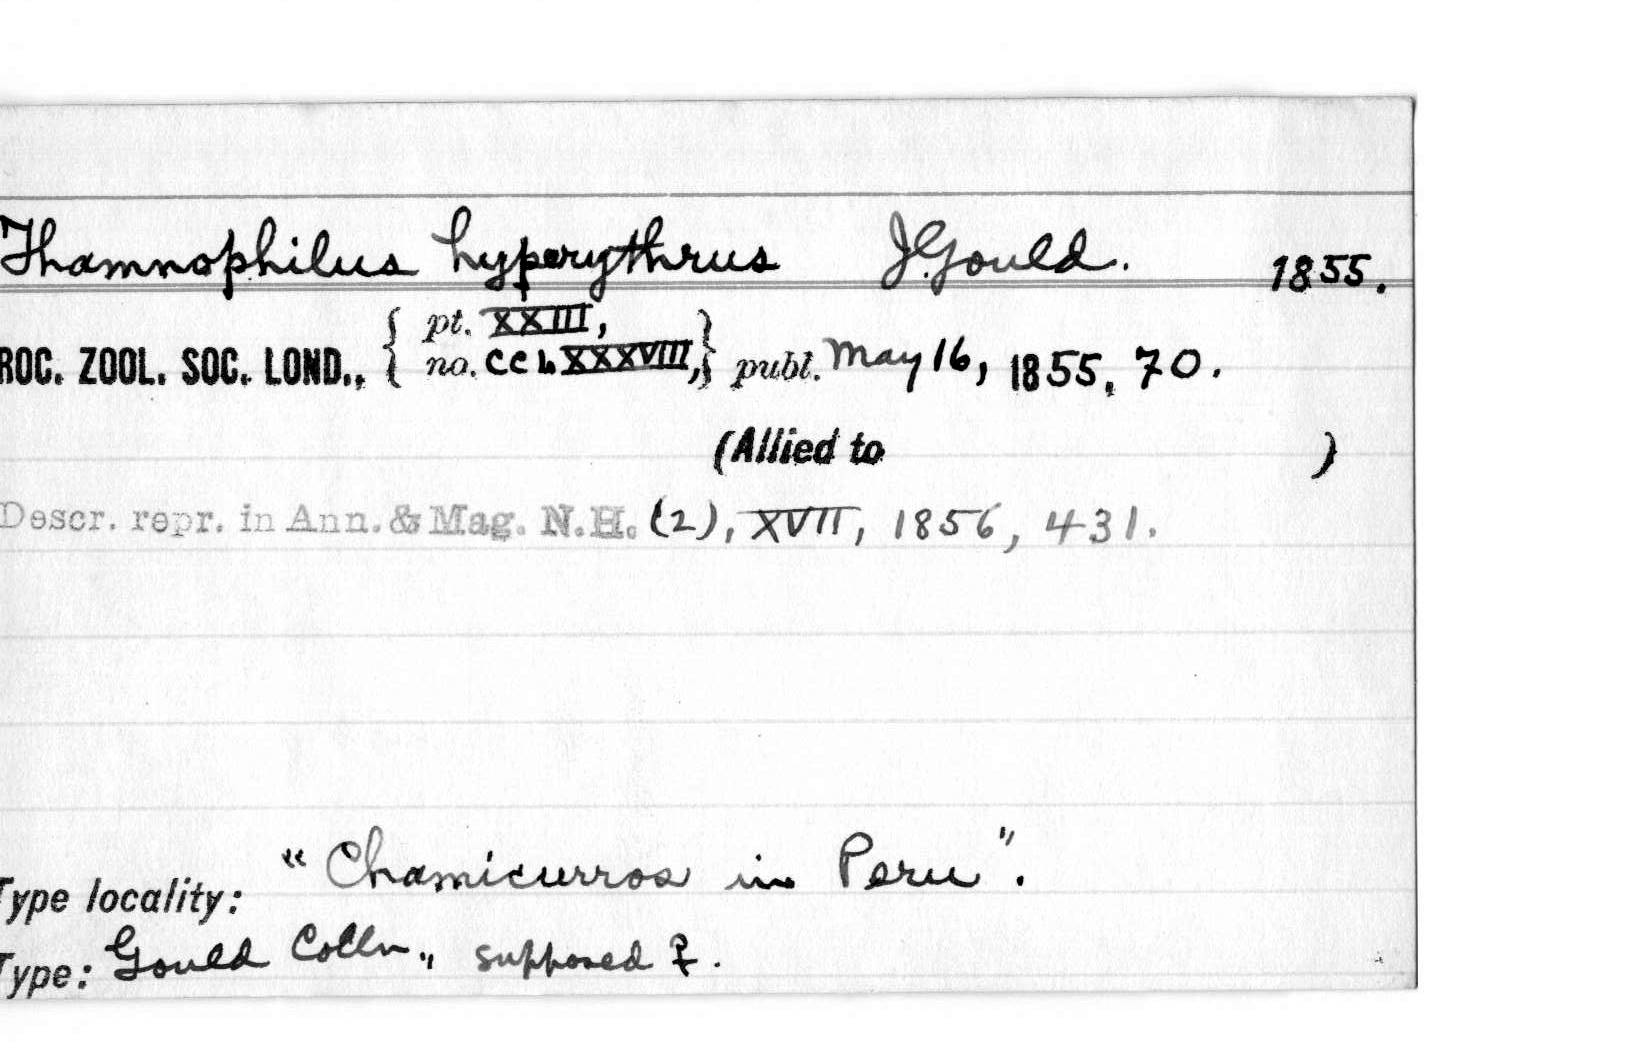 Thamnophilus hyperythrus J. Gould. 1855.
pt. XXIII,
ROC. ZOOL. SOC. LOND., { no. CCLXXXVIII, } publ. May 16, 1855, 70.
(Allied to )
Descr. repr. in Ann. & Mag. N.H. (2), XVII, 1856, 431.
"Chamicurros in Peru".
Type locality:
Type: Gould Colln., supposed ♀.